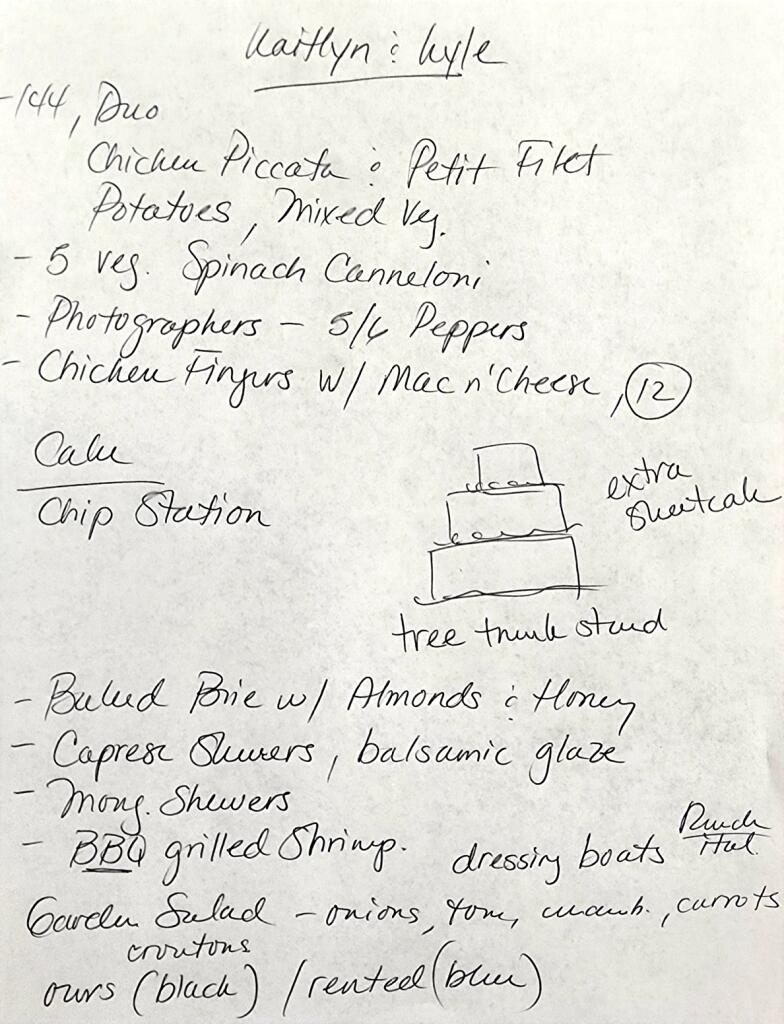 Kaitlyn & Kyle
-144, Duo
Chicken Piccata & Petit Filet
Potatoes, Mixed Veg.
- 5 veg. Spinach Canneloni
- Photographers - 5/6 Peppers
- Chicken Fingers w/ Mac n' Cheese, 12
Cake
Chip Station
extra
sheetcake
tree trunk stand
- Baked Brie w/ Almonds & Honey
- Caprese Skewers, balsamic glaze
- Mong. Skewers
- BBQ grilled Shrimp.
dressing boats Ranch
Ital.
Garden Salad - onions, tom, cucumb., carrots
croutons
ours (black) / rented (blue)